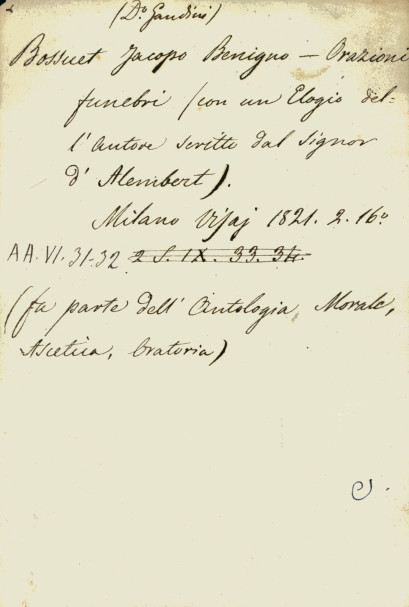 (D.º Gandini)
Bossuet Jacopo Benigno — Orazioni
funebri (con un Elogio del=
l'autore scritto dal Signor
d'Alembert).
Milano Visaj 1821. 2. 16º
AA. VI. 31-32 2 S. IX. 33. 34.
(fa parte dell'Antologia, Morale,
Ascetica, Oratoria)